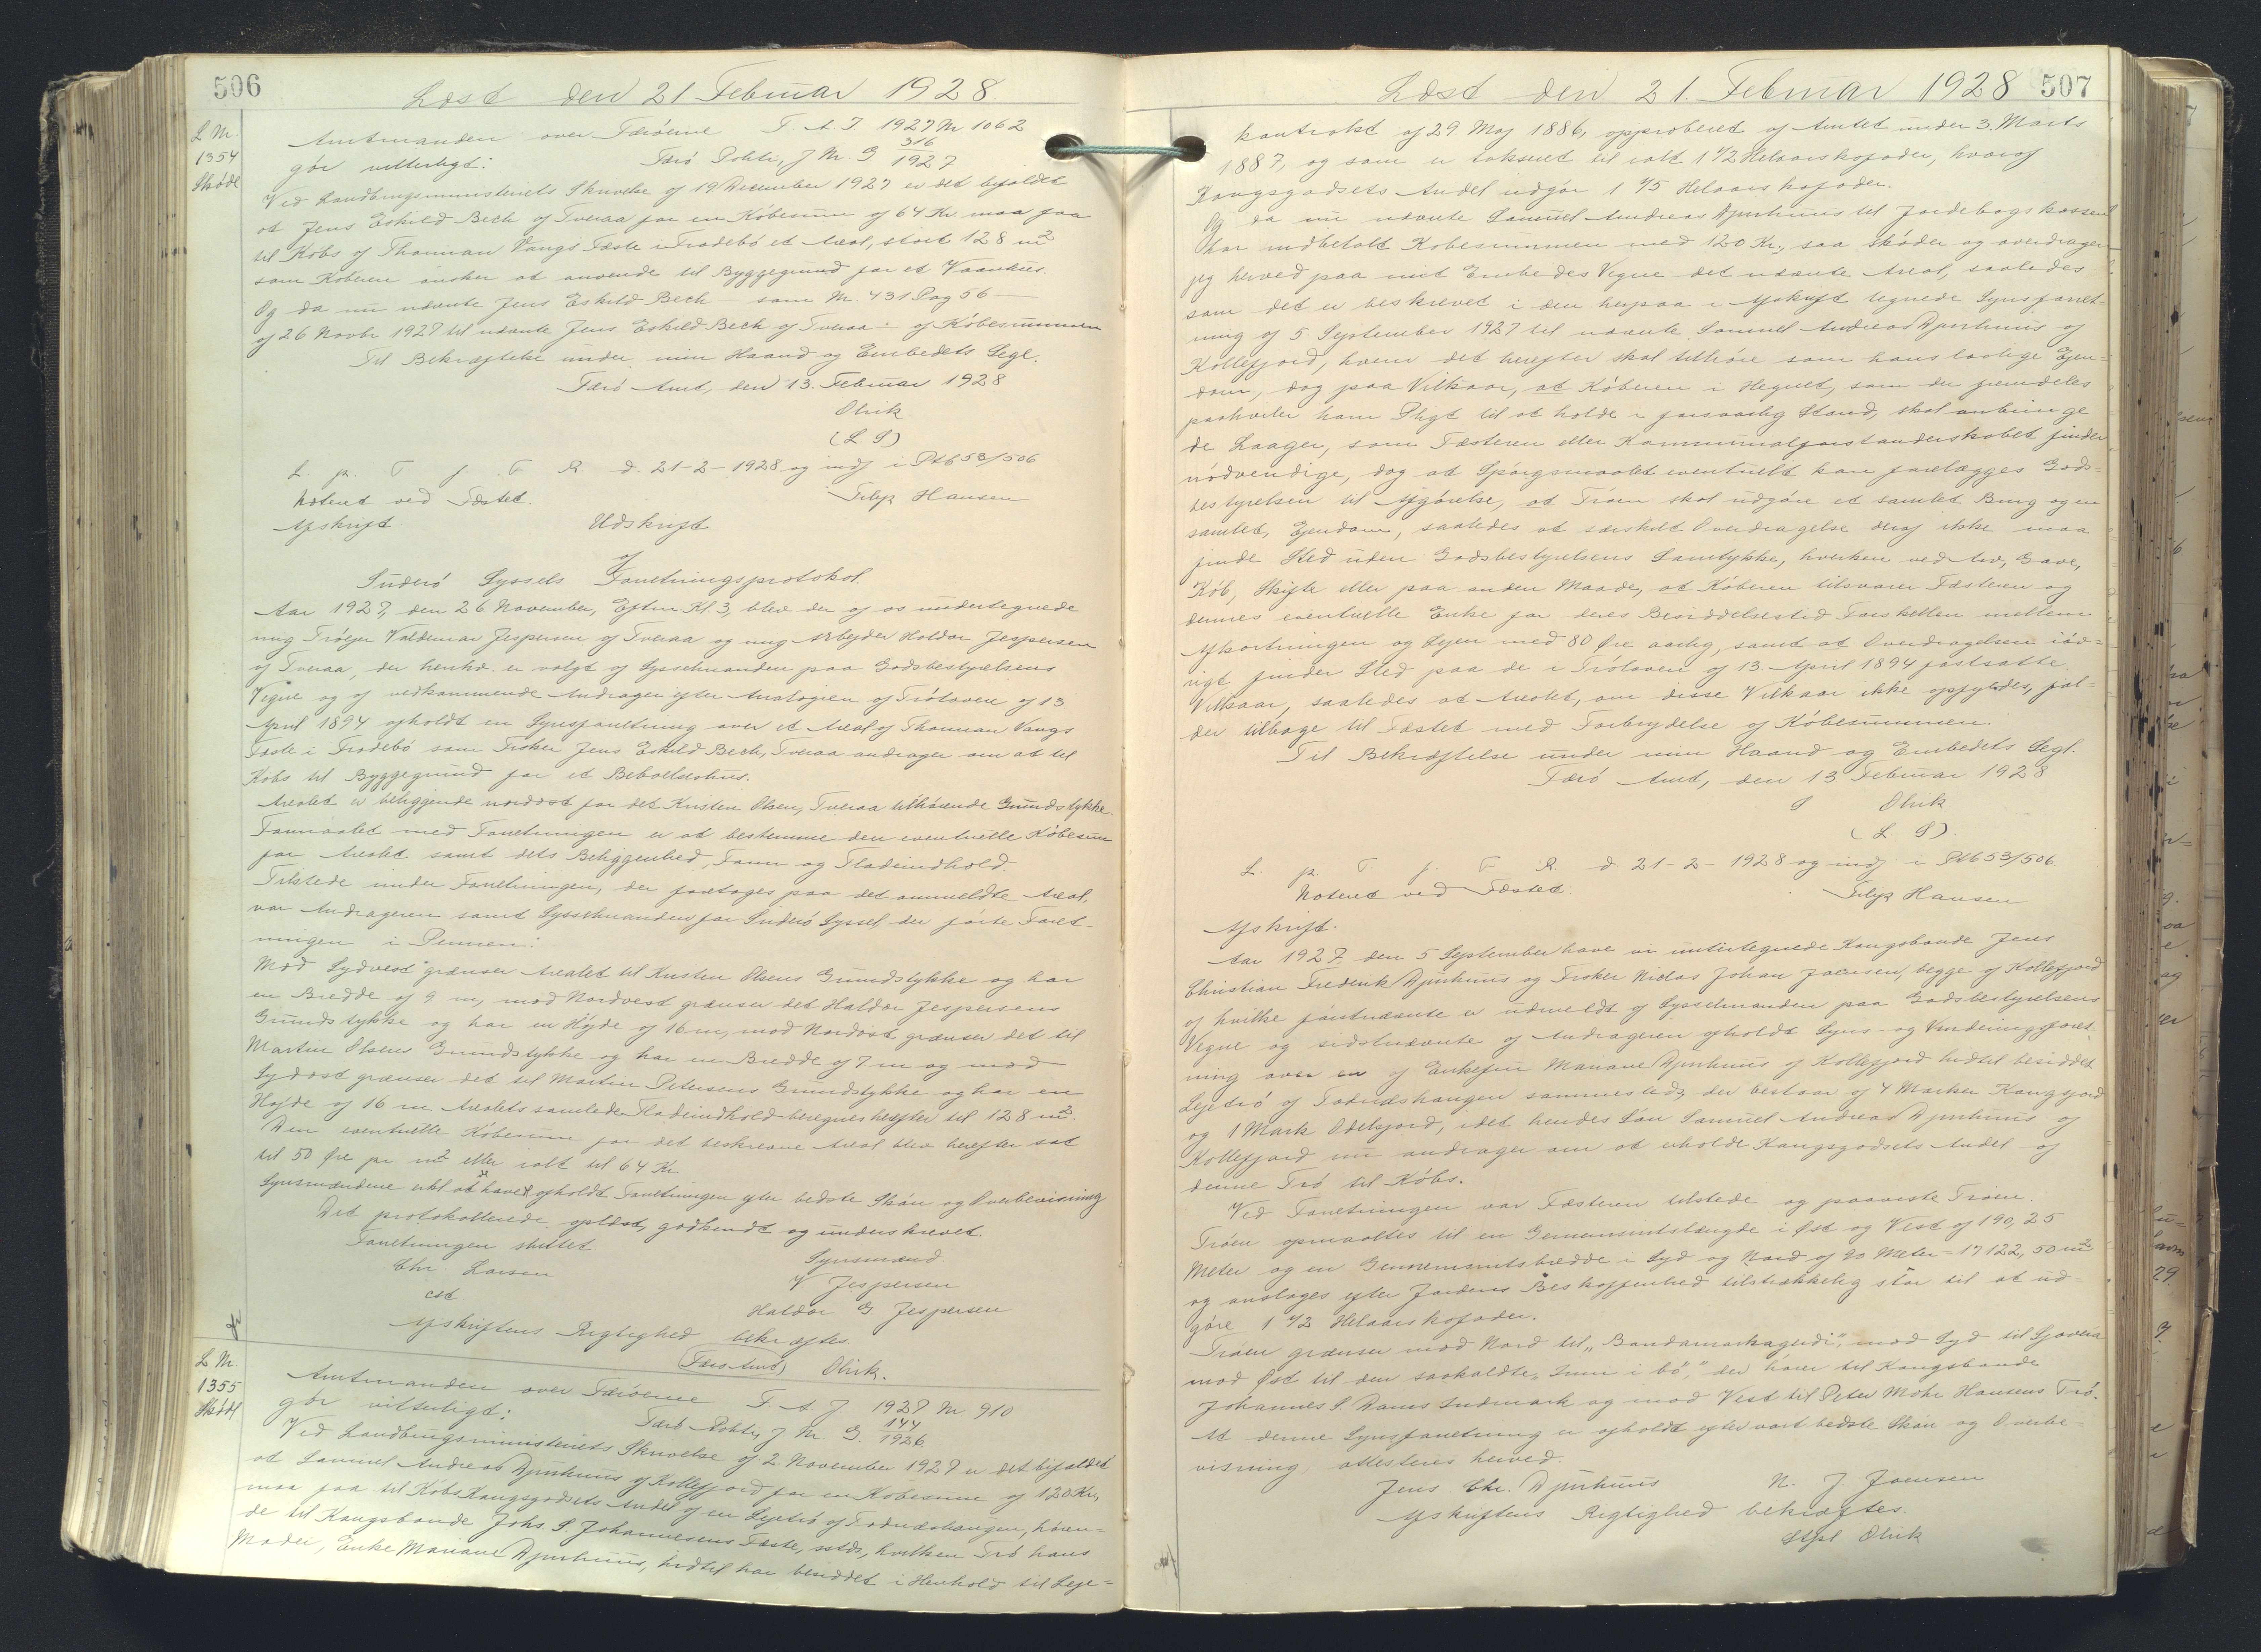 506
Læst den 21 Februar 1928
L Nr.
1354
Skøde
Amtmanden over Færøerne F. A. J 1927 Nr 1062
gör vitterligt: Færö Politi, J Nr G 316/1927
Ved Landbrugsministeriets Skrivelse af 19 December 1927 er det bifaldet
at Jens Eskild Bech af Tveraa for en Köbesum af 64 Kr maa faa
til Købs af Thomian Vangs Fæste i Frodebö et Areal, stort 128 m²
som Køberen önsker at anvende til Byggegrund for et Vaanhus.
Og da nu nævnte Jens Eskild Bech – som Nr. 431 Pag 56 –
af 26 Novbr 1927 til nævnte Jens Eskild Bech af Tveraa – af Købesummen
Til Bekræftelse under min Haand og Embedets Segl.
Færö Amt, den 13. Februar 1928
Olrik
(L. S)
L. p. T. f. F. R. d. 21-2-1928 og indf i Ptb 53/506
Noteret ved Fæstet. Filip Hansen
Afskrift Udskrift
af
Suderö Syssels Forretningsprotokol.
Aar 1927, den 26 November, Eftm Kl. 3, blev der af os undertegnede
mig Tröejer Valdemar Jespersen af Tveraa og mig Arbejder Haldor Jespersen
af Tveraa, der henhv. er valgt af Sysselmanden paa Godsbestyrelsens
Vegne og af vedkommende Andrager efter Analogien af Tröloven af 13
April 1894 afholdt en Synsforretning over et Areal af Thomian Vangs
Fæste i Frodebö som Fisker Jens Eskild Bech, Tveraa andrager om at til
Købs til Byggegrund for et Beboelseshus.
Arealet er beliggende nordöst for det Kristen Olsen, Tveraa tilhörende Grundstykke.
Formaalet med Forretningen er at bestemme den eventuelle Köbesum
for Arealet samt dets Beliggenhed, Form og Fladeindhold.
Tilstede under Forretningen, der foretoges paa det ommeldte Areal,
var Andrageren samt Sysselmanden for Suderö Syssel, der förte Forret-
ningen i Pennen:
Mod Sydvest grænser Arealet til Kristen Olsens Grundstykke og har
en Bredde af 9 m, mod Nordvest grænser det Haldor Jespersens
Grundstykke og har en Höjde af 16 m, mod Nordöst grænser det til
Martin Olsens Grundstykke og har en Bredde af 7 m og mod
Sydöst grænser det til Martin Petersens Grundstykke og har en
Höjde af 16 m. Arealets samlede Fladeindhold beregnes herefter til 128 m².
Den eventuelle Köbesum for det beskrevne Areal blev herefter sat
til 50 Øre pr m² eller ialt til 64 Kr.
Synsmændene erkl at have afholdt Forretningen efter bedste Skön og Overbevisning
Det protokollerede oplæst, godkendt og underskrevet.
Forretningen sluttet
Chr. Larsen Synsmænd
cst V Jespersen
Haldor G Jespersen
Afskriftens Rigtighed bekræftes.
(Færö Amt) Olrik.
L Nr.
1355
Skøde
Amtmanden over Færöerne F. A. J 1927 Nr 910
gör vitterligt: Færö Politi, J Nr. G. 144/1926
Ved Landbrugsministeriets Skrivelse af 2. November 1927 er det bifaldet
at Samuel Andreas Djurhuus af Kollefjord for en Købesum af 120 Kr,
maa faa til Købs Kongsgodsets Andel af en Lejetrö af Todnæshaugen, høren-
de til Kongsbonde Johs. P. Johannesens Fæste, sstds, hvilken Trö hans
Moder, Enke Mariane Djurhuus, hidtil har besiddet i Henhold til Leje=
Læst den 21. Februar 1928 507
kontrakt af 29 Maj 1886, approberet af Amtet under 3. Marts
1887, og som er takseret til ialt 1 1/2 Helaarskofoder, hvoraf
Kongsgodsets Andel udgör 1 1/5 Helaars kofoder.
Og da nu nævnte Samuel Andreas Djurhuus til Jordebogskassen
har indbetalt Købesummen med 120 Kr., saa skøder og overdrager
jeg herved paa mit Embedes Vegne det nævnte Areal, saaledes
som det er beskrevet i den herpaa i Afskrift tegnede Synsforret-
ning af 5 September 1927 til nævnte Samuel Andreas Djurhuus af
Kollefjord, hvem det herefter skal tilhöre som hans lovlige Ejen-
dom, dog paa Vilkaar, at Köberen i Hegnet, som der fremdeles
paahviler ham Pligt til at holde i forsvarlig Stand, skal anbringe
de Laager, som Fæsteren eller Kommunalforstanderskabet finder
nödvendige, dog at Spörgsmaalet eventuelt kan forelægges Gods-
bestyrelsen til Afgörelse, at Tröen skal udgöre et samlet Brug og en
samlet, Ejendom, saaledes at særskilt Overdragelse deraf ikke maa
finde Sted uden Godsbestyrelsens Samtykke, hverken ved Arv, Gave,
Köb, Skifte eller paa anden Maade, at Köberen tilsvarer Fæsteren og
dennes eventuelle Enke for deres Besiddelsestid Forskellen mellem
Afkortningen og Lejen med 80 Øre aarlig, samt at Overdragelsen iöv-
rigt finder Sted paa de i Trölaven af 13. April 1894 fastsatte
Vilkaar, saaledes at Arealet, om disse Vilkaar ikke opfyldes, fal-
der tilbage til Fæstet med Fortrydelse af Köbesummen.
Til Bekræftelse under min Haand og Embedets Segl.
Færö Amt, den 13 Februar 1928
Olrik
(L S)
L. p. T. f. F. R. d. 21-2-1928 og indf i Ptb 53/506
Noteret ved Fæstet. Filip Hansen
Afskrift.
Aar 1927 den 5 September have vi undertegnede Kongsbonde Jens
Christian Frederik Djurhuus og Fisker Niclas Johan Joensen, begge af Kollefjord
af hvilke förstnævnte er udmeldt af Sysselmanden paa Godsbestyrelsens
Vegne og sidstnævnte af Andrageren afholdt Syns- og Vurderingsforret
ning over en af Enkefru Mariane Djurhuus af Kollefjord hidtil besiddet
Lejetrö af Todnæshaugen sammesteds, der bestaar af 4 Marker Kongsjord
og 1 Mark Odelsjord, idet hendes Sön Samuel Andreas Djurhuus af
Kollefjord nu andrager om at erholde Kongsgodsets Andel af
denne Trö til Købs.
Ved Forretningen var Fæsteren tilstede og paaviste Tröen.
Tröen opmaaltes til en Gennemsnitslængde i Øst og Vest af 190,25
Meter og en Gennemsnitsbredde i Syd og Nord af 90 Meter = 17122,50 m²
og anslages efter Jordens Beskaffenhed tilstrækkelig stor til at ud-
göre 1 1/2 Helaarskofoder.
Tröen grænser mod Nord til „Bondamarkagerdi", mod Syd til Sjoveia
mod Øst til den saakaldte „Inni i bö", der hörer til Kongsbonde
Johannes P. Dams Indmark og mod Vest til Peter Mohr Hansens Trö.
At denne Synsforretning er afholdt efter vort bedste Skön og Overbe-
visning attesteres herved.
Jens Chr. Djurhuus N. J Joensen
Afskriftens Rigtighed bekræftes.
Stpl Olrik